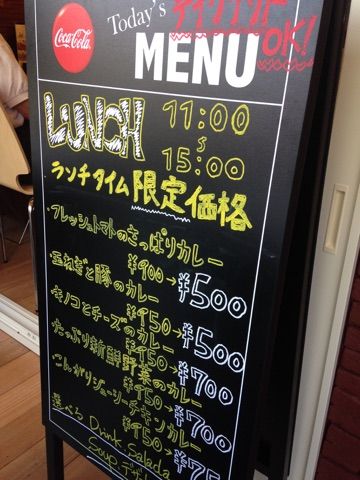 Coca-Cola
Today's
テイクアウト
OK!
MENU
LUNCH
11:00
〜
15:00
ランチタイム限定価格
・フレッシュトマトのさっぱりカレー
¥900→¥500
・玉ねぎと豚のカレー
¥950→¥500
・キノコとチーズのカレー
¥950→¥700
・たっぷり新鮮野菜のカレー
¥950→¥700
・こんがりジューシーチキンカレー
¥950→¥75
選べる Drink Salada
Soup デザ